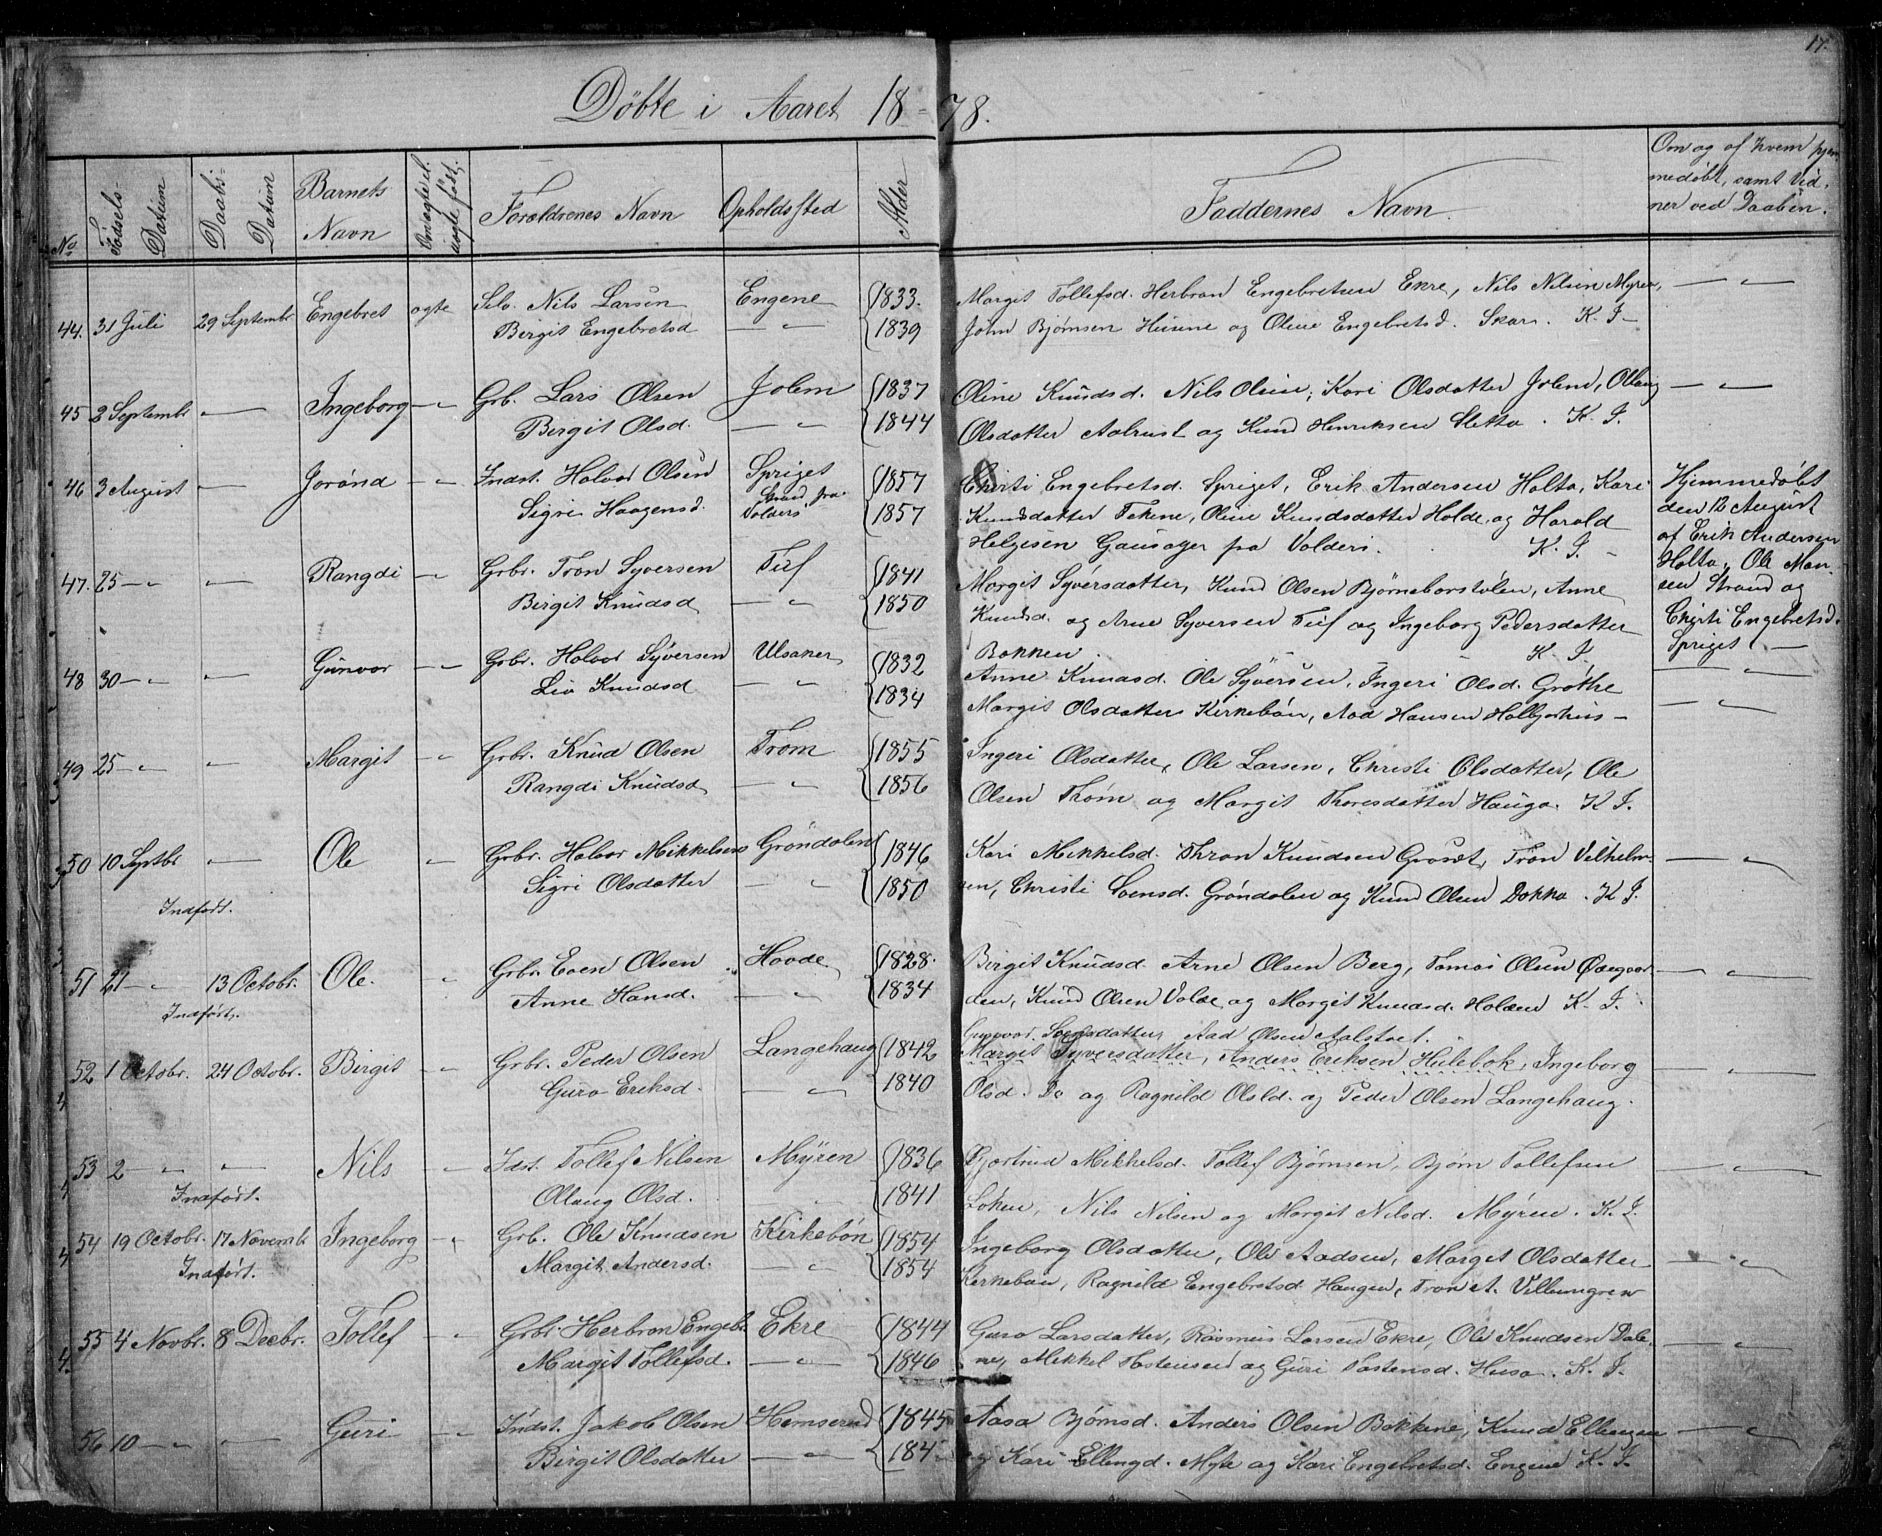 17.
Döbte i Aaret 18-78.
No
Födsels-Datum
Daabs-Datum
Barnets Navn
Om ægte el. uægte født.
Foræeldrenes Navn
Opholdssted
Alder
Faddernes Navn.
Om og af hvem hjem-
medøbt, samt Vid-
ner ved Daaben.
44. 31 Juli 29 Septembr Engebret ægte Selv. Nils Larsen Engene 1833. Margit Tollefsd. Herbran Engebretsen Ekre, Nils Nilsen Myren,
Birgit Engebretsd — „ — 1839 John Bjørnsen Husme og Oline Engebretsd. Skar. K. I.
45 2 Septembr — „ — Ingeborg — „ — Grb. Lars Olsen Jolem 1837 Oline Knudsd. Nils Olsen, Kari Olsdatter Jolem, Ollaug
Birgit Olsd. — „ — 1844 Olsdatter Aalrust og Knud Henriksen Sletto. K. I.
46 3 August — „ — Jorønd — „ — Indst. Holvor Olsen Spriget 1857 Christi Engebretsd. Spriget, Erik Andersen Holto, Kari Hjemmedöbt
Sigri Haagensd. fra Valders 1857 Knudsdatter Tekene, Oline Knudsdatter Holde, og Harold den 12 August
Helgesen Gausager fra Valders. K. I. af Erik Andersen
47. 25 — „ — Rangdi — „ — Grbr. Tron Syversen Tuf 1841 Margit Syversdatter, Knud Olsen Bjørneborstølen, Anne Holto, Ole Mon-
Birgit Knudsd — „ — 1850 Knudsd. og Arne Syversen Tuf og Ingeborg Pedersdatter sen Strand og
Bakken. K. I. Christi Engebretsd.
Spriget. —
48 30 — „ — Gunvor — „ — Grbr. Holvor Syversen Ulsaker 1832 Anne Knudsd. Ole Syversen, Ingeri Olsd. Grøthe
Liv Knudsd — „ — 1834 Margit Olsdatter Kirkebøn, Aad Hansen Holbjørhus —
49 25 — „ — Margit — „ — Grbr. Knud Olsen Trøm 1855 Ingeri Olsdatter, Ole Larsen, Christi Olsdatter, Ole
Rangdi Knudsd — „ — 1856 Olsen Thrøm og Margit Thoresdatter Hauga. K I.
50 10 Septbr — „ — Ole — „ — Grbr. Holvor Mikkelsen Gröndalen 1846 Kari Mikkelsd. Thron Knudsen Grøset, Tron Vilhelm-
Sigri Olsdatter — „ — 1850 sen, Christi Svensd. Gröndolen og Knud Olsen Dokka. K I.
Indført.
51 21 — „ — 13 Octobr. Ole. — „ — Grbr. Even Olsen Hovde 1828. Birgit Knudsd. Arne Olsen Berg, Tomas Olsen Ødegaar-
Indført. Anne Hansd. — „ — 1834 den, Knud Olsen Volde og Margit Knudsd. Holden K. I.
Gunvor Svensdatter, Aad Olsen Aalstvet.
52 1 Octobr. 24 Octobr. Birgit — „ — Grbr. Peder Olsen Langehaug 1842 Margit Syversdatter, Anders Eriksen Hulebok, Ingeborg
Guro Eriksd. — „ — 1840 Olsd. Do og Ragnild Olsd. og Peder Olsen Langehaug.
53 2 — „ — Nils — „ — Idst. Tollef Nilsen Myren 1836 Gjertrud Mikkelsd. Tollef Bjørnsen, Bjørn Tollefsen
Indført. Olaug Olsd. 1841 Løken, Nils Nilsen og Margit Nilsd. Myren. K. I.
54 19 Octobr. 17 Novemb Ingeborg — „ — Grb. Ole Knudsen Kirkebøn 1854 Ingeborg Olsdatter, Ole Aadsen, Margit Olsdatter
Indført. Margit Andersd. — „ — 1854 Kirkebøn, Ragnild Engebretsd. Haugen, Tron A. Villumgrev
55 4 Novbr. 8 Decbr. Tollef — „ — Grbr. Herbron Engebr. Ekre 1844 Guro Larsdatter, Rasmus Larsen Ekre, Ole Knudsen Dale-
Margit Tollefsd. — „ — 1846 ne, Mikkel Tostensen og Guri Tostensd. Huso. K. I.
56 10 — „ — Guri — „ — Indst. Jakob Olsen Hemserud 1845 Aasa Bjørnsd. Anders Olsen Bakkene, Knud Ellingsen
Birgit Olsdatter — „ — 184 og Kari Ellingd. Myre og Kari Engebretsd. Engene K. I.